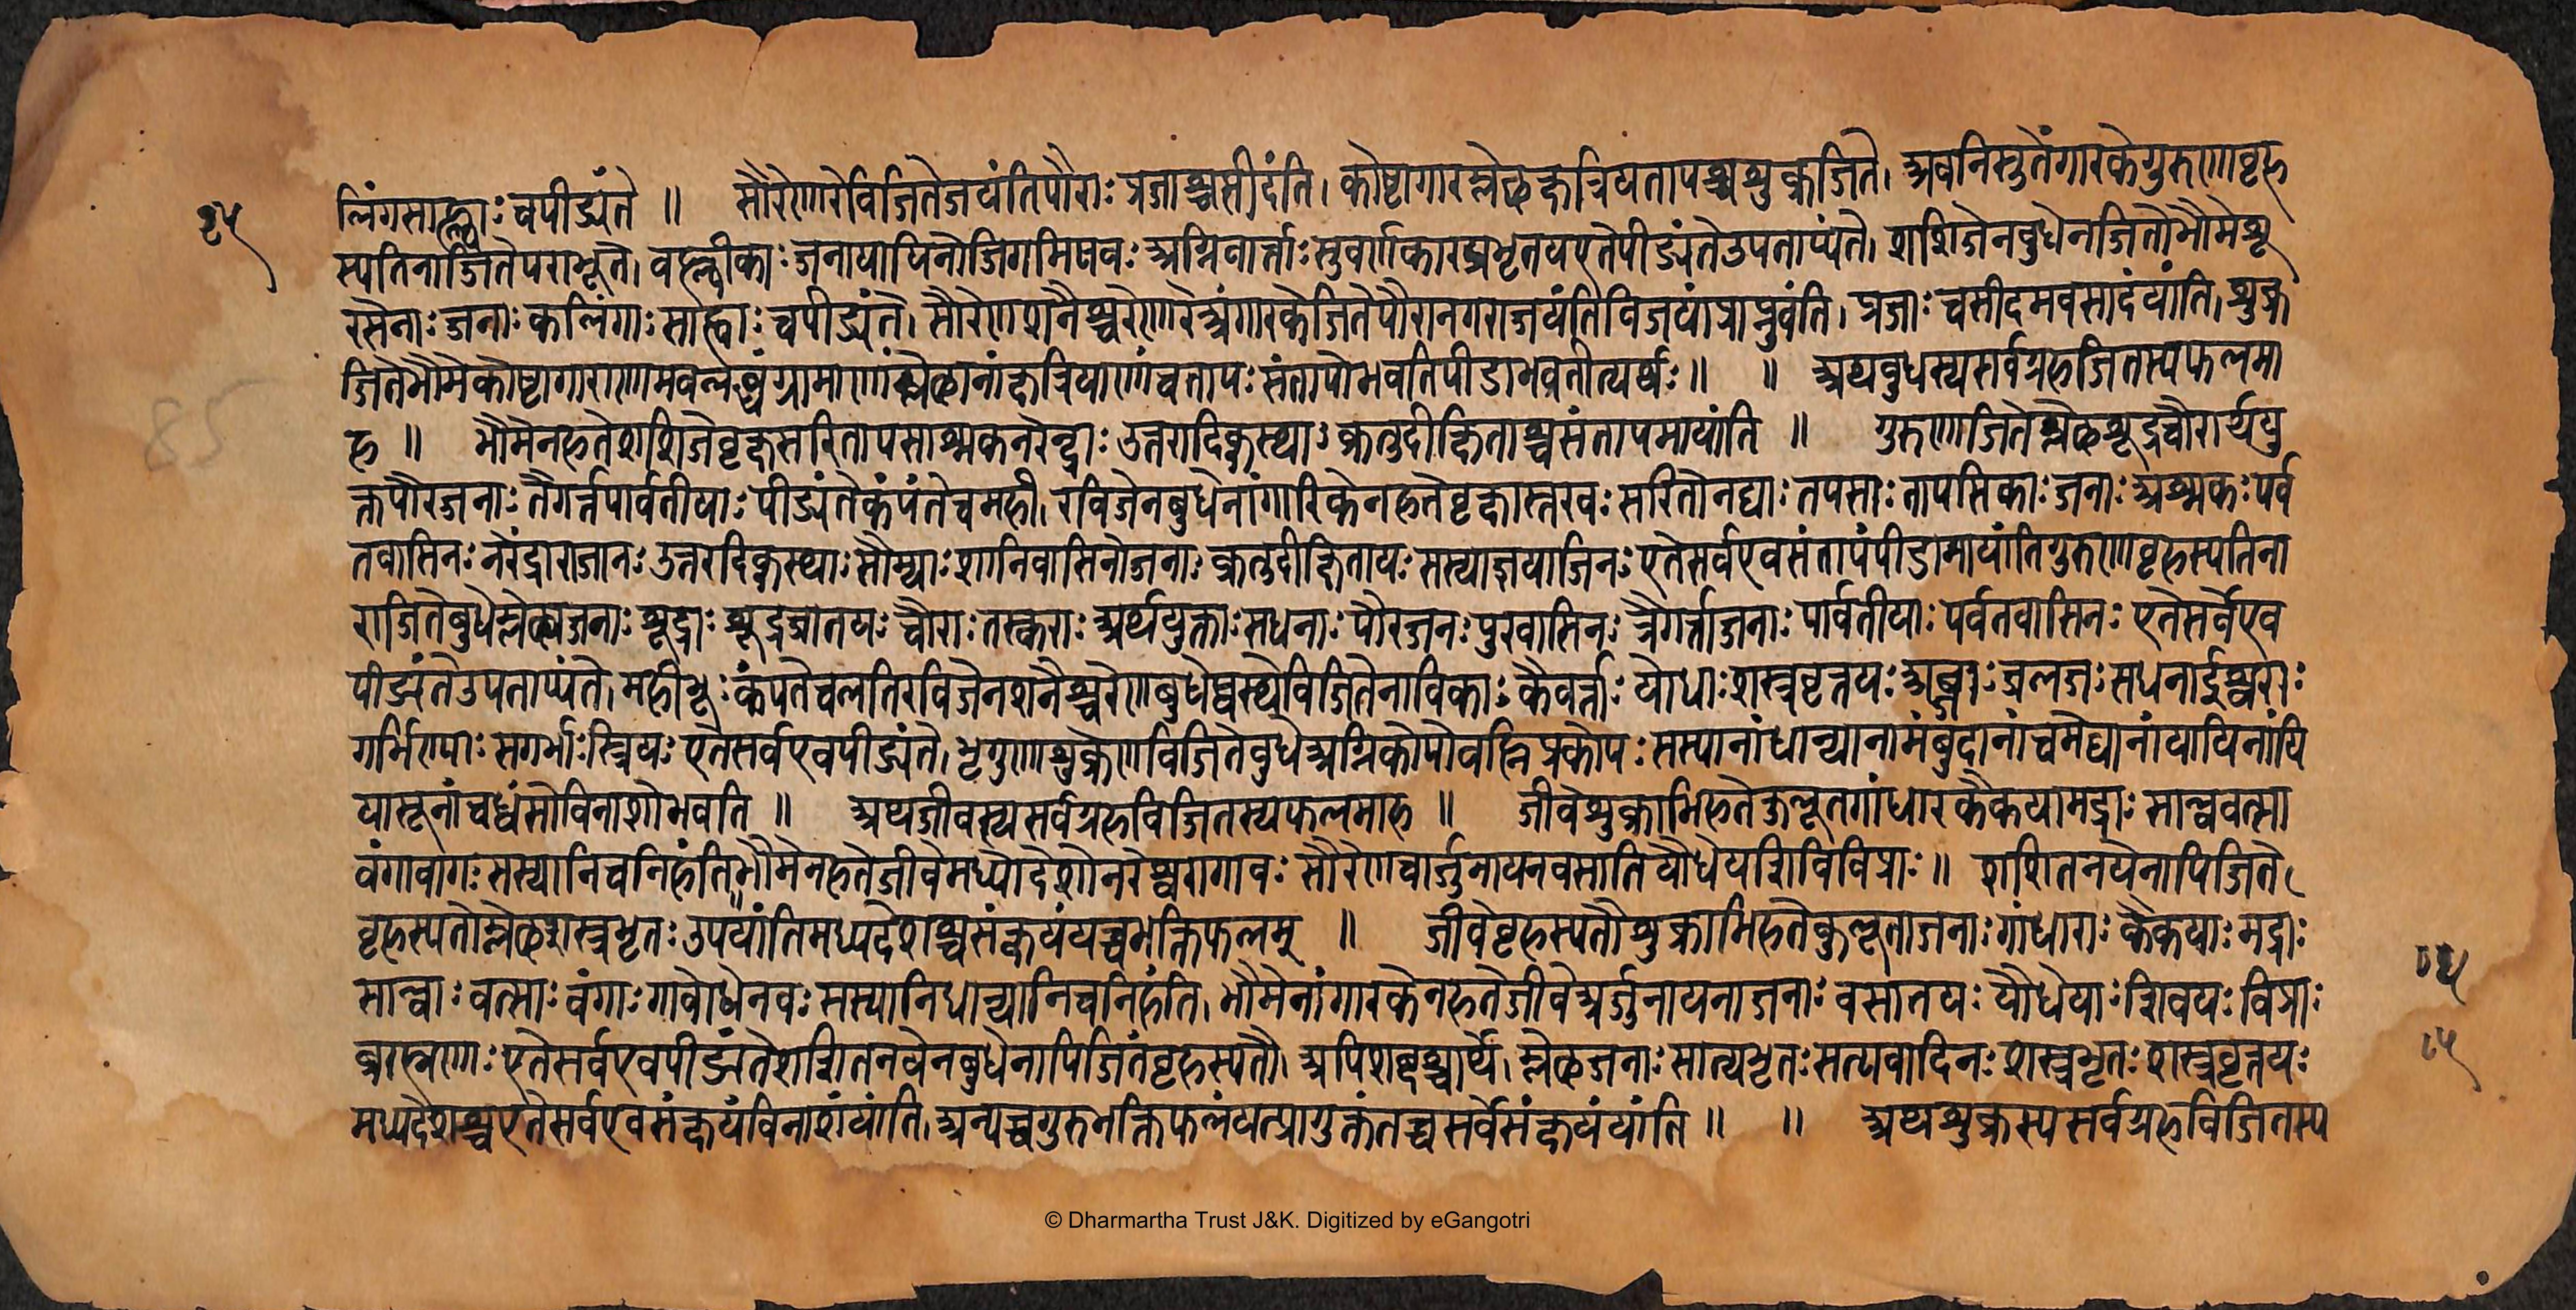 लिंगसाल्वाः चपीड्यंते ॥ सौरेणारेविजितेजयंतिपौराः प्रजाश्चसीदंति। कोष्टागारम्लेछक्षत्रियतापश्चशुक्रजिते। अवनिसुतेंगारकेगुरुणावृह
स्पतिनाजितेपराभूते। वाह्लीकाः जनायायिनोजिगमिषवः अग्निवार्त्ताः सुवर्णकारप्रभृतयएतेपीड्यंतेउपताप्यंते। शशिजेनबुधेनजितेभौमेशू
रसेनाः जनाः कलिंगाः साल्वाः चपीड्यंते। सौरेणशनैश्चरेणारेअंगारकेजितेपौरानगराजयंतिविजयंप्राप्नुवंति। प्रजाः चसीदमवसादंयांति। शुक्र
जितेभौमेकोष्टागाराणाम ग्रामाणांम्लेछानांक्षत्रियाणांचतापः संतापोभवतिपीडाभवतीत्यर्थः ॥ ॥ अथबुधस्यसर्वग्रहजितस्यफलमा
ह ॥ भौमेनहतेशशिजेवृक्षसरितापसाश्मकनरेन्द्राः उत्तरादिक्स्थाः क्रतुदीक्षिताश्चसंतापमायांति ॥ गुरुणाजितेम्लेछशूद्रचौरार्थयु
क्तपौरजनाः त्रैगर्त्तपार्वतीयाः पीड्यंतेकंपंतेचमही। रविजेनबुधेनांगारिकेनहतेवृक्षास्तरवः सरितोनद्याः तपसाः तापसिकाः जनाः अश्मकः पर्व
तवासिनः नरेंद्राराजानः उत्तरदिक्स्थाः सौम्याः शानिवासिनोजनाः क्रतुदीक्षितायः सस्थायज्ञयाजिनः एतेसर्वएवसंतापंपीडामायांतिगुरुणावृहस्पतिना
राजितेबुधेम्लेछाजनाः शूद्राः शूद्रजातयः चौराः तस्कराः अर्थयुक्ताः सधनाः पौरजनः पुरवासिनः त्रैगर्त्ताजनाः पार्वतीयाः पर्वतवासिनः एतेसर्वेएव
पीड्यंतेउपताप्यंते। महीभूः कंपतेचलतिरविजेनशनैश्चरेणबुधे विजितेनाविकाः कैवर्त्ताः योधाः शस्त्रवृत्तयः अब्जाः जलजः सधनाईश्वराः
गर्भिण्याः सगर्भाः स्त्रियः एतेसर्वएवपीड्यंते। भृगुणाशुक्रेणविजितेबुधेअग्निकोपोवह्निप्रकोपः सस्यानांधान्यानामंबुदानांचमेघानांयायिनांयि
यासूनांचध्वंसोविनाशोभवति ॥ अथजीवस्यसर्वग्रहविजितस्यफलमाह ॥ जीवेशुक्राभिहतेकुलूतगांधारकैकयामद्राः साल्ववत्सा
वंगावागः सस्यानिचनिहंति॥भौमेनहतेजीवेमध्योदेशोनरेश्वरागावः सौरेणचार्जुनायनवसातियौधेयशिबिविप्राः ॥ शशितनयेनापिजिते
वृहस्पतौम्लेछशस्त्रभृतः उपयांतिमध्यदेशश्चसंक्षयंयच्चभक्तिफलम् ॥ जीवेवृहस्पतौशुक्राभिहतेकुलूताजनाः गांधाराः कैकयाः मद्राः
साल्वाः वत्साः वंगाः गावोधेनवः सस्यानिधान्यानिचनिहंति। भौमेनांगारकेनहतेजीवेअर्जुनायनाजनाः वसातयः यौधेयाः शिवयः विप्राः
ब्राह्मणाः एतेसर्वएवपीड्यंतेशशितनयेनबुधेनापिजितेवृहस्पतौ। अपिशब्दश्चार्थे। म्लेछजनाः सात्यभृतः सत्यवादिनः शस्त्रभृतः शस्त्रवृत्तयः
मध्यदेशश्चएतेसर्वएवसंक्षयंविनाशंयांति। अन्यच्चगुरुभक्तिफलंयत्प्रागुक्तंतच्चसर्वेसंक्षयंयांति ॥ ॥ अथशुक्रस्यसर्वग्रहविजितस्य
85
८५
© Dharmartha Trust J&K. Digitized by eGangotri